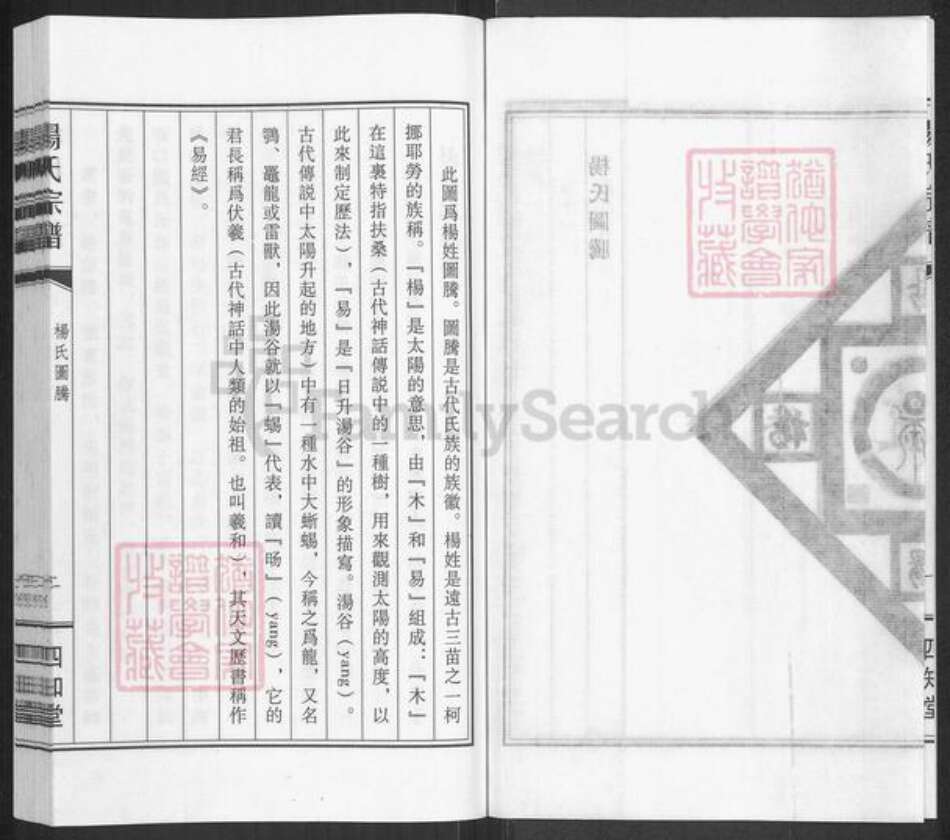 楊氏圖騰
此圖爲楊姓圖騰。圖騰是古代氏族的族徽。楊姓是遠古三苗之一柯
挪耶勞的族稱。『楊』是太陽的意思，由『木』和『昜』組成：『木』
在這裏特指扶桑（古代神話傳説中的一種樹，用來觀測太陽的高度，以
此來制定歷法），『昜』是『日升湯谷』的形象描寫。湯谷（yang）。
古代傳説中太陽升起的地方）中有一種水中大蜥蜴，今稱之爲龍，又名
鶚、鼉龍或雷獸，因此湯谷就以『蜴』代表，讀『昜』（yang），它的
君長稱爲伏羲（古代神話中人類的始祖。也叫羲和），其天文歷書稱作
《易經》。
楊氏宗譜
楊氏圖騰
四知堂
猶他家
譜學會
收藏
猶他家
譜學會
收藏
FamilySearch